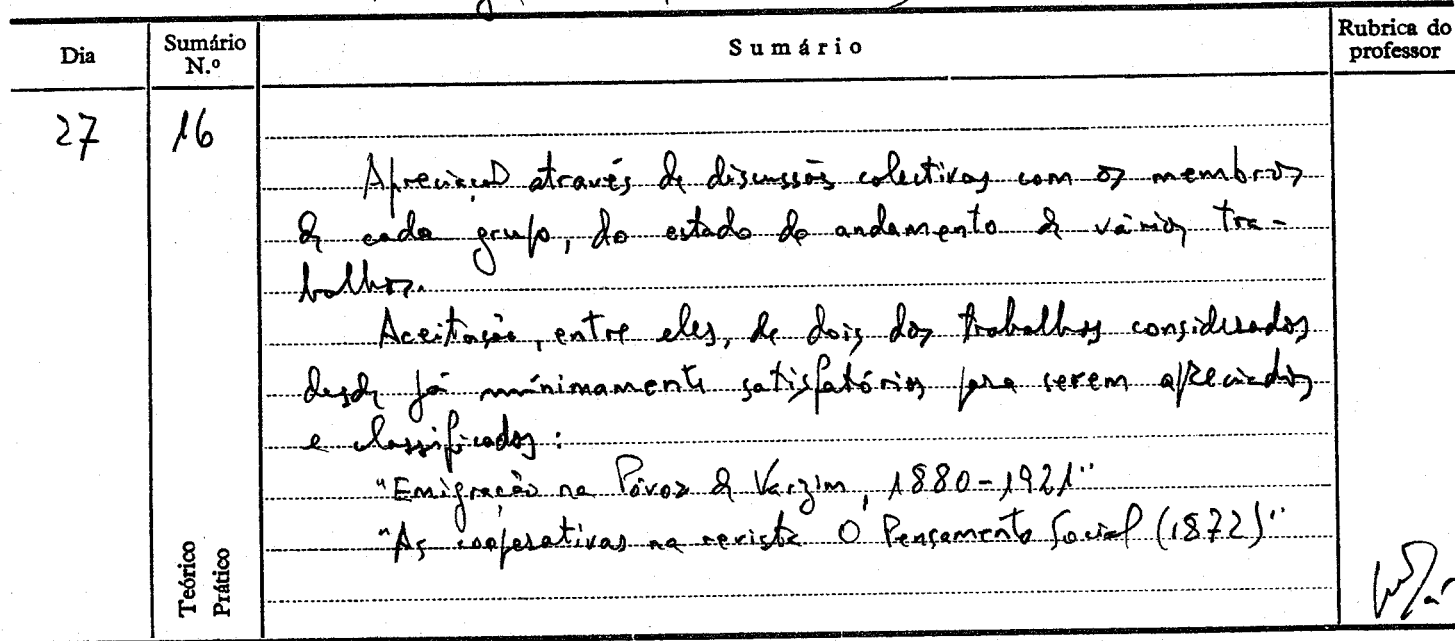 Dia
Sumário N.º
Sumário
Rubrica do professor
27
16
Apreciação através de discussões colectivas com os membros
de cada grupo, do estado de andamento de vários tra-
balhos.
Aceitação, entre eles, de dois dos trabalhos considerados
desde já mínimamente satisfatórios para serem apreciados
e classificados:
"Emigração na Póvoa de Varzim, 1880-1921"
"As cooperativas na revista O Pensamento Social (1872)"
Teórico
Prático